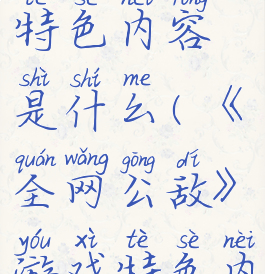 tè sè nèi róng
特色内容
shì shí me
是什么(《
quán wǎng gōng dí
全网公敌》
yóu xì tè sè nèi
游戏特色内